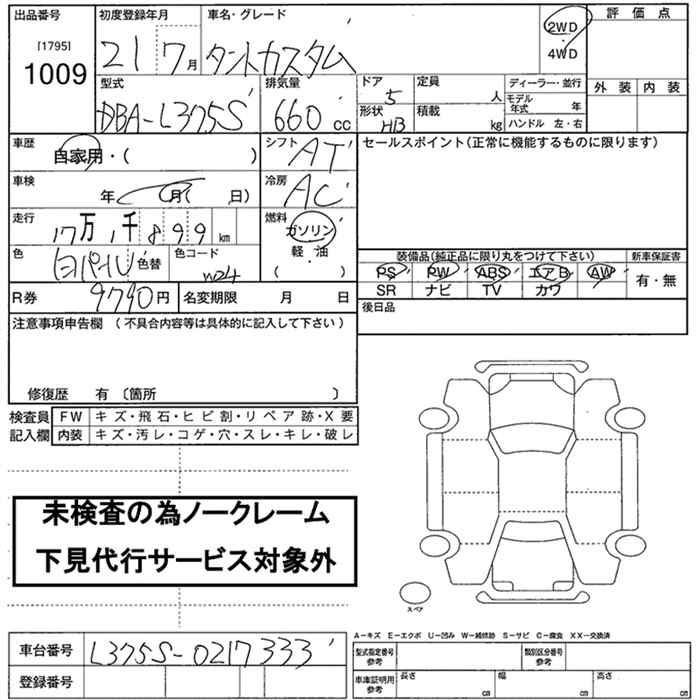 出品番号 初度登録年月 車名・グレード 2WD 評価点
[1795] 1009 21 7月 タントカスタム 4WD
型式 排気量 ドア 定員 ディーラー・並行 外装 内装
DBA-L375S 660cc 5 人 モデル年式 年
形状 積載 ハンドル 左・右
HB kg
車歴 自家用・( ) シフト AT セールスポイント(正常に機能するものに限ります)
車検 年 月( 日) 冷房 AC
走行 17万1千899km 燃料 ガソリン
軽・油
( )
色 白パール 色替 色コード W24
装備品(純正品に限り丸をつけて下さい) 新車保証書
PS PW ABS エアB AW 有・無
SR ナビ TV カワ
R券 9790円 名変期限 月 日 後日品
注意事項申告欄 (不具合内容等は具体的に記入して下さい)
修復歴 有 〔箇所 〕
検査員 FW キズ・飛石・ヒビ割・リペア跡・X要
記入欄 内装 キズ・汚レ・コゲ・穴・スレ・キレ・破レ
未検査の為ノークレーム
下見代行サービス対象外
スペア
A-キズ E-エクボ U-凹み W-補修跡 S-サビ C-腐食 XX-交換済
車台番号 L375S-0217333 型式指定番号 参考 類別区分番号 参考
登録番号 車庫証明用 参考 長さ cm 幅 cm 高さ cm